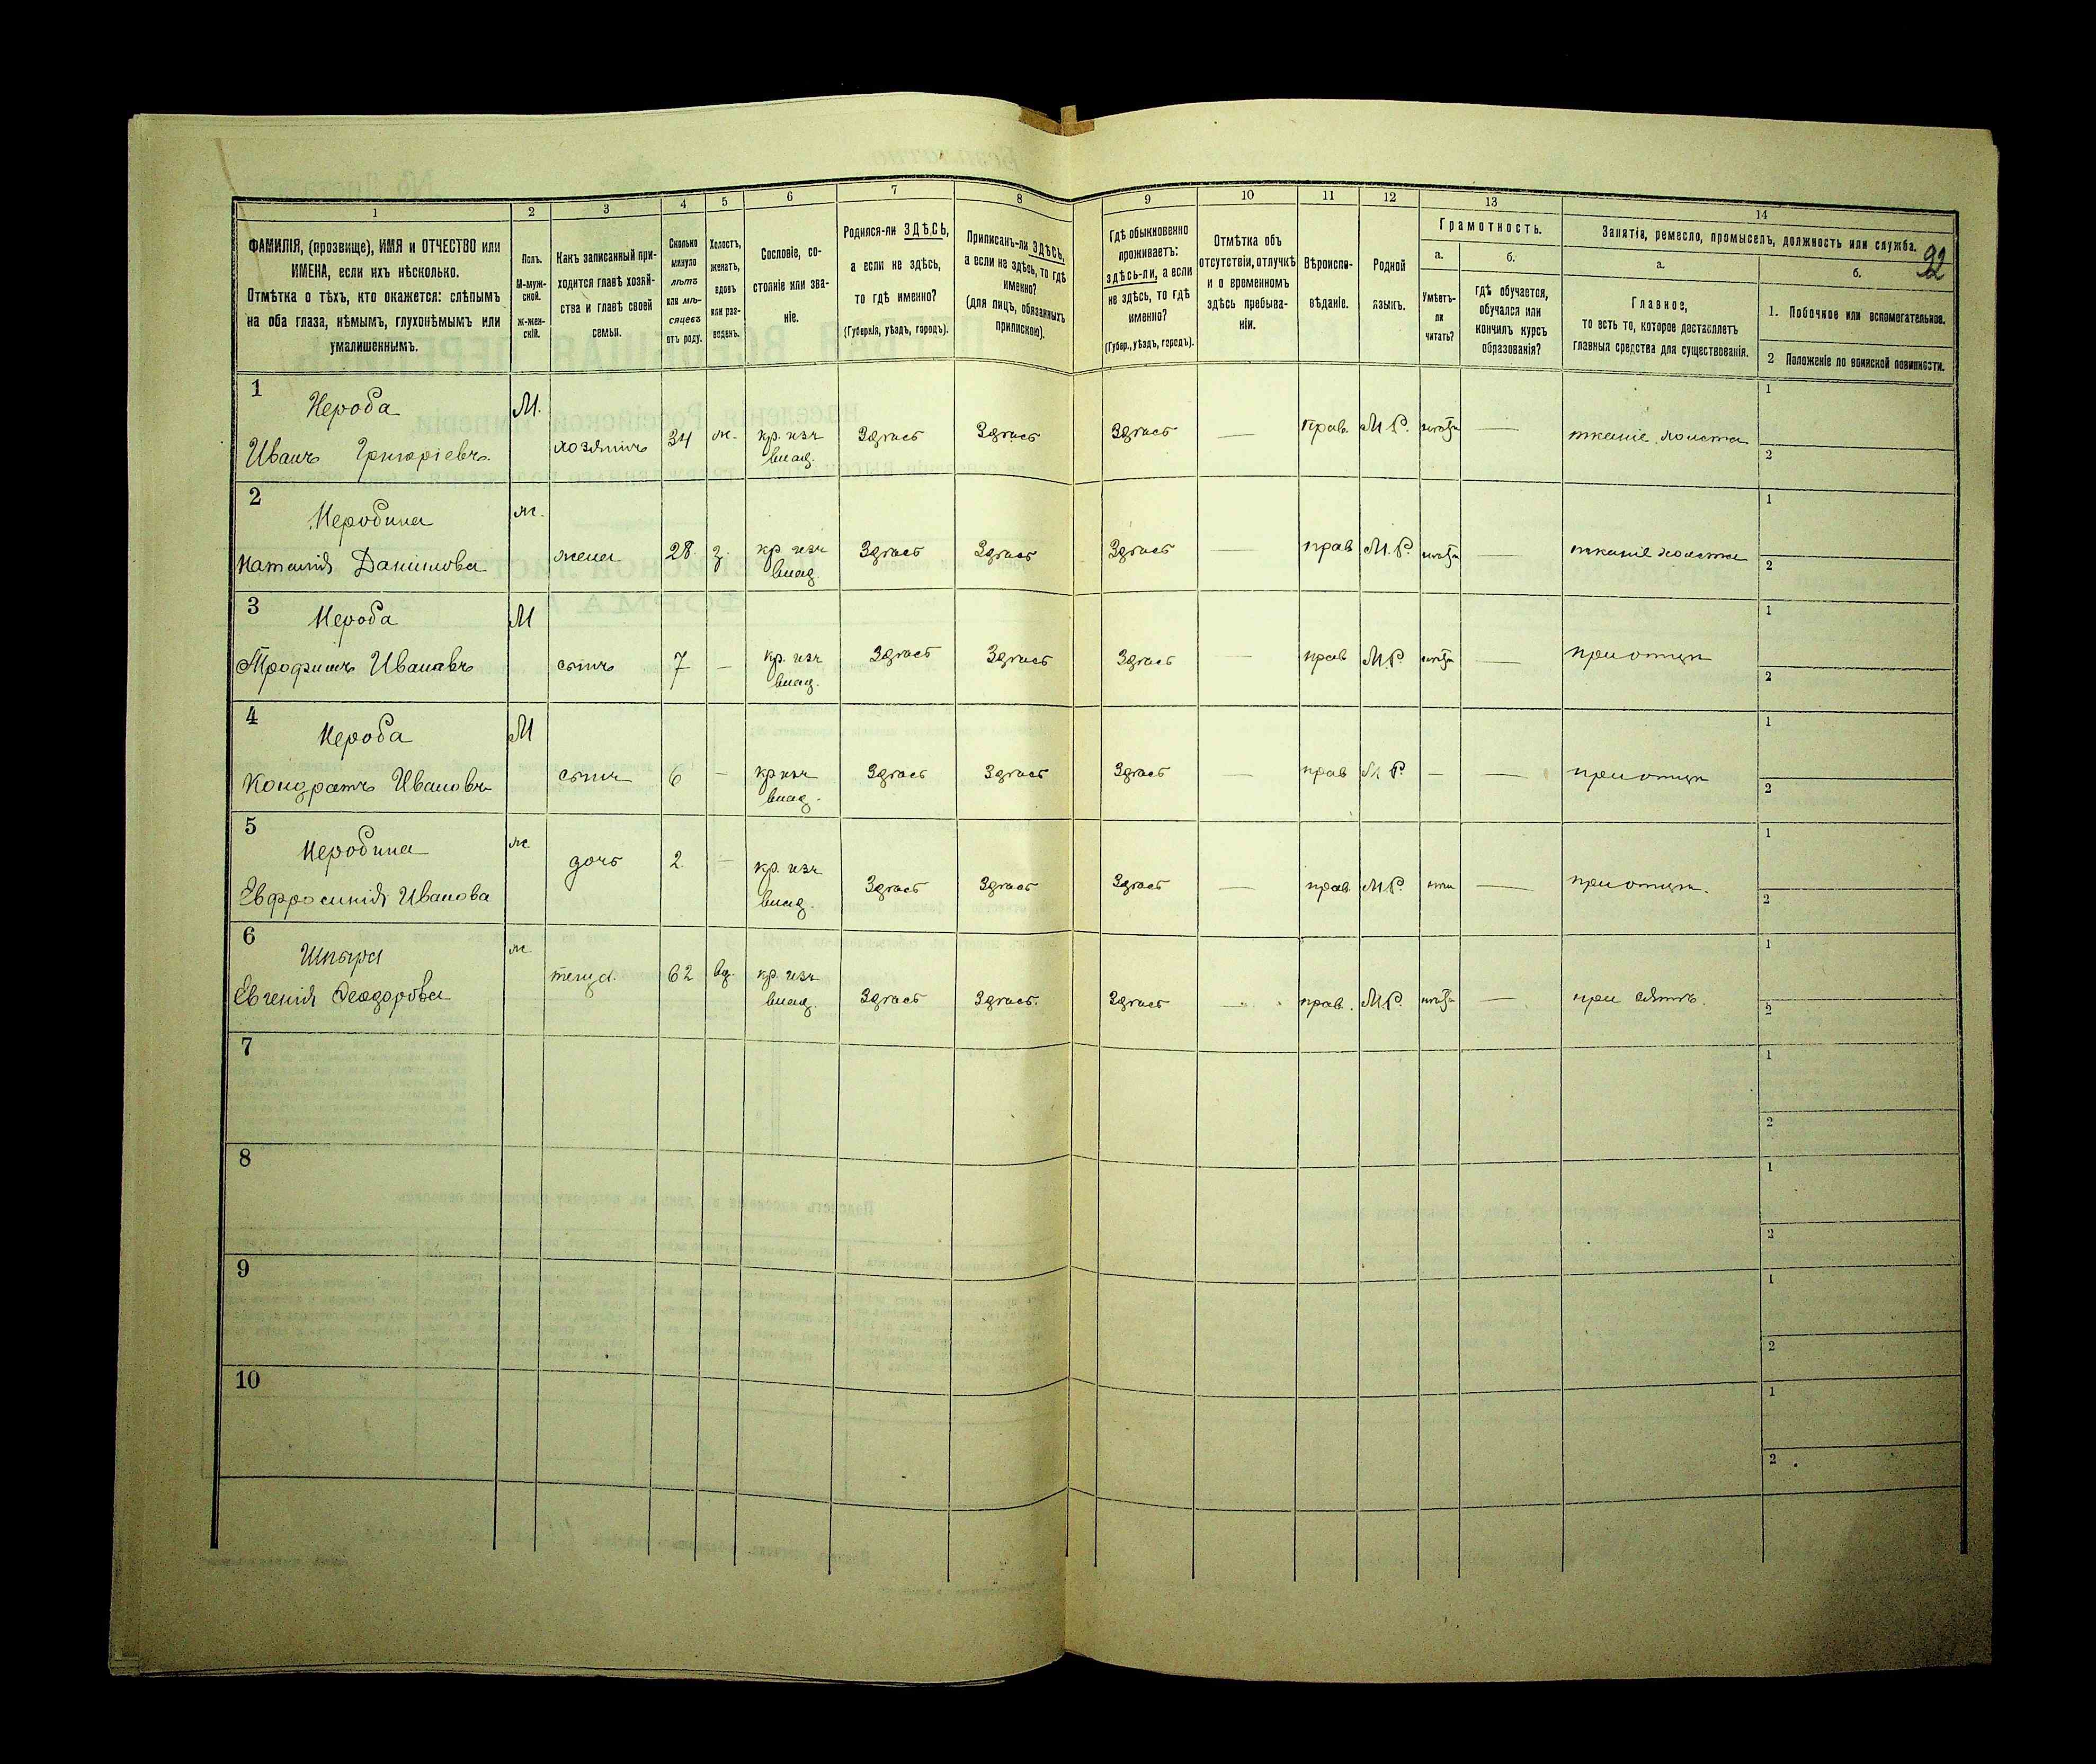 1 2 3 4 5 6 7 8 9 10 11 12 13 14
ФАМИЛІЯ, (прозвище), ИМЯ и ОТЧЕСТВО или
ИМЕНА, если ихъ нѣсколько.
Отмѣтка о тѣхъ, кто окажется: слѣпымъ
на оба глаза, нѣмымъ, глухонѣмымъ или
умалишеннымъ.
Полъ.
М-муж-
ской.
Ж-жен-
скій.
Какъ записанный при-
ходится главѣ хозяй-
ства и главѣ своей
семьи.
Сколько
минуло
лѣтъ
или мѣ-
сяцевъ
отъ роду.
Холостъ,
женатъ,
вдовъ
или раз-
веденъ.
Сословіе, со-
стояніе или зва-
ніе.
Родился-ли ЗДѢСЬ,
а если не здѣсь,
то гдѣ именно?
(Губернія, уѣздъ, городъ).
Приписанъ-ли ЗДѢСЬ,
а если не здѣсь, то гдѣ
именно?
(для лицъ, обязанныхъ
припискою).
Гдѣ обыкновенно
проживаетъ:
здѣсь-ли, а если
не здѣсь, то гдѣ
именно?
(Губер., уѣздъ, городъ).
Отмѣтка объ
отсутствіи, отлучкѣ
и о временномъ
здѣсь пребыва-
ніи.
Вѣроиспо-
вѣданіе.
Родной
языкъ.
Грамотность.
а.
Умѣетъ-
ли
читать?
б.
гдѣ обучается,
обучался или
кончилъ курсъ
образованія?
Занятія, ремесло, промыселъ, должность или служба.
а.
Главное,
то есть то, которое доставляетъ
главныя средства для существованія.
б.
22
1. Побочное или вспомогательное.
2 Положеніе по воинской повинности.
1 Нероба М.
Иванъ Григоріевъ хозяинъ 34 ж. кр. изъ Здѣсь Здѣсь Здѣсь — прав. М.Р. — ткание холста
влад.
1
2
2 Неробина ж.
Наталія Данилова жена 28 з. кр. изъ Здѣсь Здѣсь Здѣсь — прав М.Р. — ткание холста
влад.
1
2
3 Нероба М
Трофимъ Ивановъ сынъ 7 — кр. изъ Здѣсь Здѣсь Здѣсь — прав М.Р. — при отцѣ
влад.
1
2
4 Нероба М
Кондратъ Ивановъ сынъ 6 — кр изъ Здѣсь Здѣсь Здѣсь — прав М.Р. — — при отцѣ
влад.
1
2
5 Неробина ж
Евфросинія Иванова дочь 2 — кр. изъ Здѣсь Здѣсь Здѣсь — прав М.Р. — при отцѣ.
влад.
1
2
6 ж.
Евгенія Феодорова теща 62 вд. кр. изъ Здѣсь Здѣсь. Здѣсь — прав. М.Р. — при зятѣ.
влад.
1
2
7
1
2
8
1
2
9
1
2
10
1
2